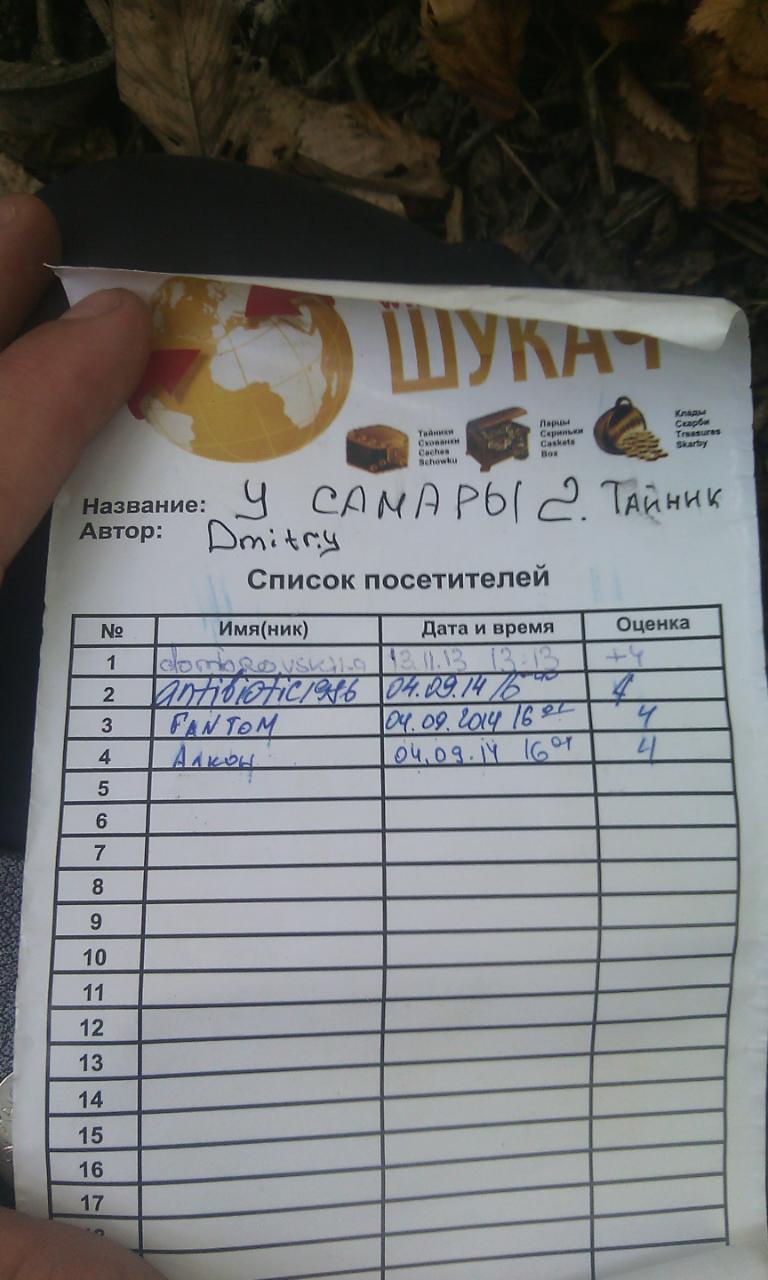 ШУКАЧ
Тайники
Схованки
Caches
Schowku
Ларцы
Скриньки
Caskets
Box
Клады
Скарби
Treasures
Skarby
Название: У САМАРЫ 2. Тайник
Автор: Dmitry
Список посетителей
№ Имя(ник) Дата и время Оценка
1 13.11.13 13:13 +4
2 antibiotic1986 04.09.14 16 4
3 FANTOM 04.09.2014 16 4
4 Алкон 04.09.14 16 04 4
5
6
7
8
9
10
11
12
13
14
15
16
17